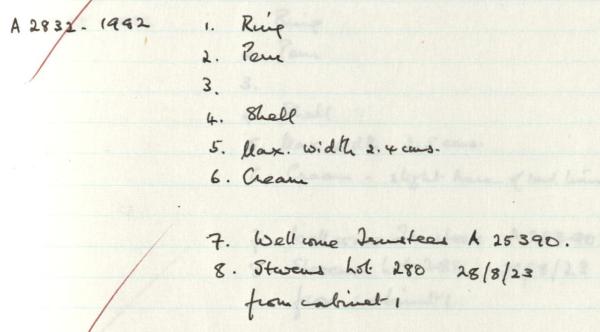 A 2832. 1982 1. Ring
2. Peru
3.
4. Shell
5. Max. width 2.4 cms.
6. Cream
7. Wellcome Trustees A 25390.
8. Stevens Lot 280 28/8/23
from cabinet 1